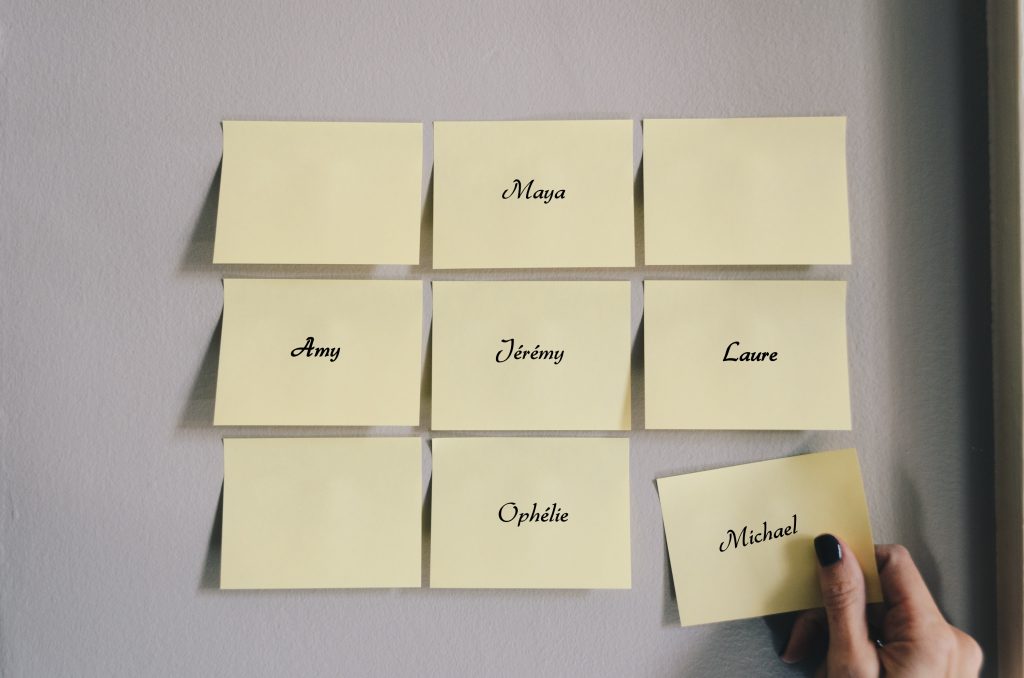 Maya
Amy
Jérémy
Laure
Ophélie
Michael